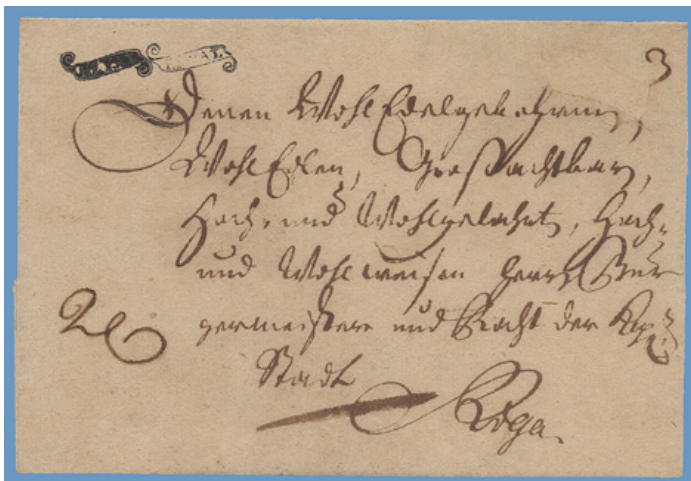 3
Denen WohlEdelgebohrnen,
WohlEdlen, Großachtbarn,
Hoch- und Wohlgelahrten, Hoch-
und Wohlweisen Herrn Bür
germeistern und Racht der
Stadt
Riga.